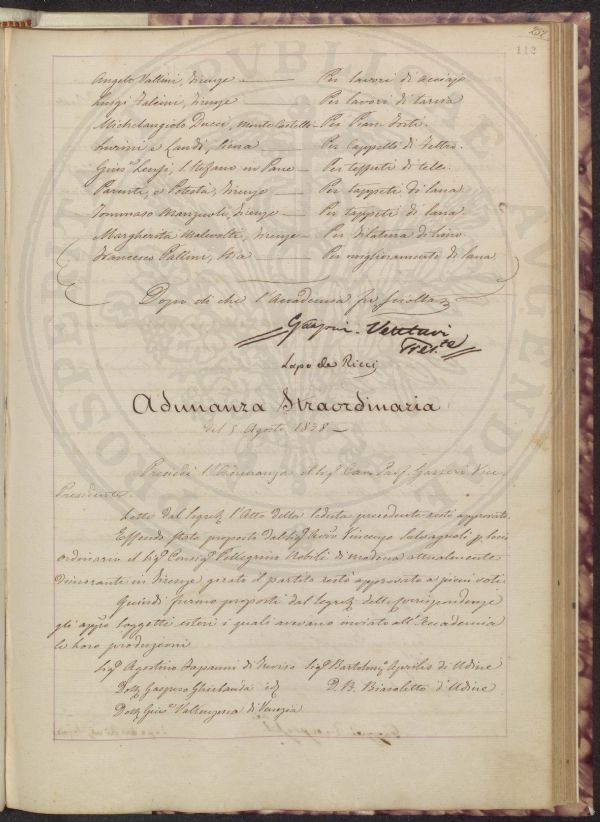 112
Angelo Vallini, Firenze — Per lavori di acciajo
Luigi Falcini, Firenze — Per lavori di tarsia
Michelangiolo Ducci, Monte Castello — Per Pian-Forte.
Lucini e Landi, Siena — Per Cappelli di Feltro.
Gius.e Lenzi, S. Stefano in Pane — Per tessuti di tele.
Parenti, e Potestà, Firenze — Per tappeti di lana
Tommaso Manzuoli, Firenze — Per tappeti di lana.
Margherita Malevolti, Firenze — Per filatura di Lino
Francesco Pallini, Stia — Per miglioramento di lana
Dopo di che l'Accademia fu sciolta
Lapo de Ricci
Adunanza Straordinaria
del 5. Agosto 1838 —
Presiedè l'Adunanza il Sig. Cav. Prof. Gazzeri Vice
Presidente.
Letto dal Segret. l'Atto della Seduta precedente restò approvato.
Essendo stato proposto dal Sig. Avv. Vincenzo Salvagnoli p. Socio
ordinario il Sig. Consig. Pellegrino Nobili di Modena attualmente
dimorante in Firenze girato il partito restò approvato a pieni voti.
Quindi furono proposti dal Segret. delle Corrispondenze
gli appo Soggetti esteri i quali avevano inviato all'Accademia
le loro produzioni
Sig. Agostino Fapanni di Treviso Sig. Bartolom. Aprilis di Udine
Dott. Gaspero Ghirlanda id. D. B. Biasoletto d'Udine
Dott. Gius.e di Venezia
PROSPERITATI PUBLICAE AUGENDAE